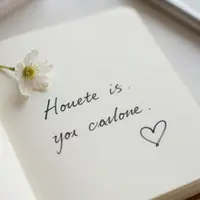 Houete is.
you carlone.